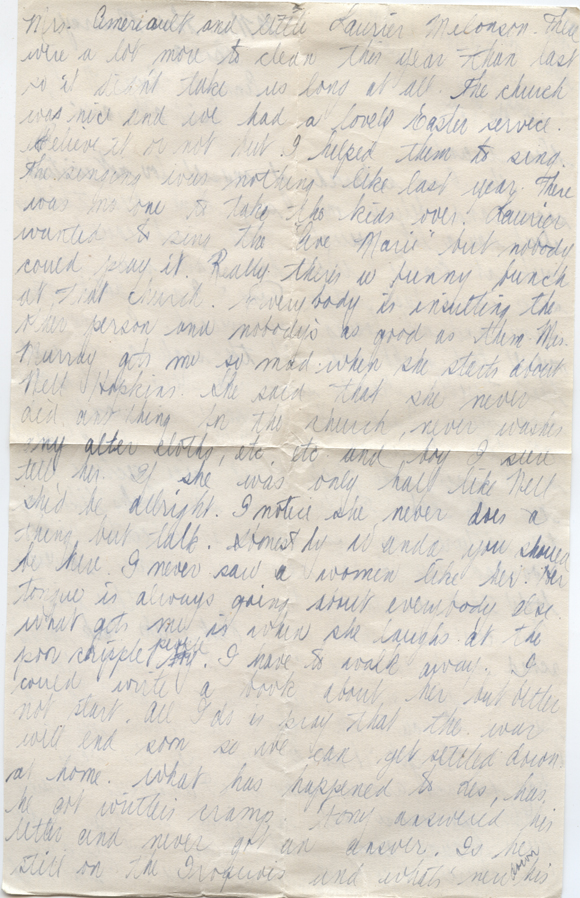 Mrs. Ameriault and little Laurier Melonson. There
were a lot more to clean this year than last
so it didnt take us long at all. The church
was nice and we had a lovely Easter service.
Believe it or not but I helped them to sing.
The singing was nothing like last year. There
was no one to take the kids over. Laurier
wanted to sing the "Ave Marie" but nobody
could play it. Really there's a funny bunch
at that church. Everybody is insulting the
other person and nobody's as good as them. Mrs.
Murray gets me so mad when she starts about
Nell Hopkins. She said that she never
did anything for the church, never washes
any alter cloths, etc. etc and boy I sure
tell her. If she was only half like Nell
she'd be allright. I notice she never does a
thing but talk. Honest to you should
be here. I never saw a women like her. Her
tongue is always going about everybody else.
What gets me is when she laughs at the
poor cripple. I have to walk away. I
could write a book about her but better
not start. All I do is pray that the war
will end soon so we can get settled down
at home. What has happened to Des, has
he got writers cramp. Hont answered his
letter and never got an answer. Is he
still on the Iroquois and whats new his